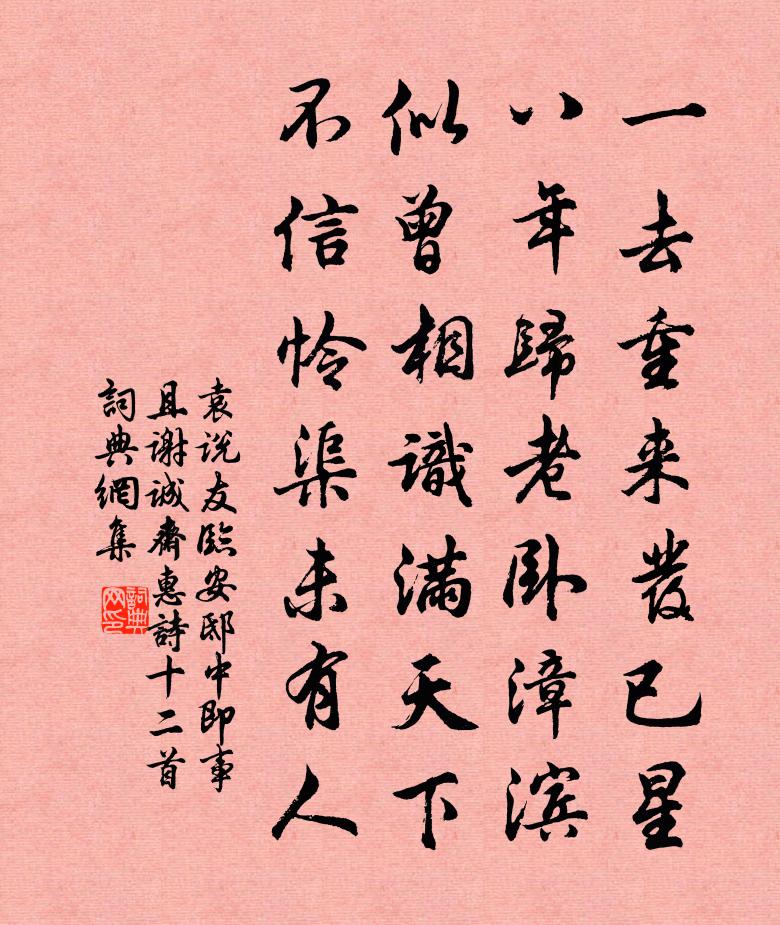 一去重来发已星
八年歸老卧漳滨
似曾相識满天下
不信怜渠未有人
袁说友臨安邸中即事
且谢诚齋惠詩十二首
詞典網集
詞典网印